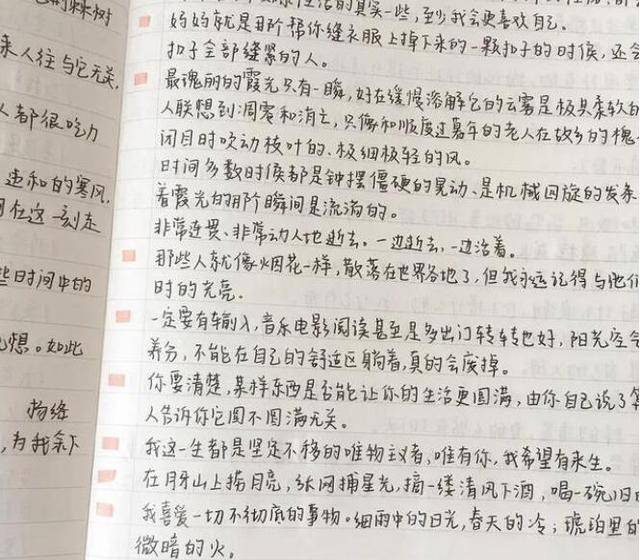 的林树
来人往与它无关,
人都很吃力
违和的寒风,
在这一刻走
些时间中的
想。如此
为我余下
生活的真实一些,至少我会更喜欢自己。
妈妈就是那阶帮你缝衣服上掉下来的一颗扣子的时候,还会
扣子全部缝紧的人。
最瑰丽的霞光只有一瞬,好在缓慢溶解它的云雾是极其柔软的
人联想到凋零和消亡,只像和顺度过暮年的老人在故乡的槐
闭目时吹动枝叶的、极细极轻的风。
时间多数时候都是钟摆僵硬的晃动、是机械回旋的发条
着霞光的那个瞬间是流淌的。
非常连贯、非常动人地逝去。一边逝去,一边活着。
那些人就像烟花一样,散落在世界各地了,但我永远记得与他们
时的光亮。
一定要有输入,音乐电影阅读甚至是多出门转转也好,阳光空气
养分,不能在自己的舒适区躺着,真的会废掉。
你要清楚,某样东西是否能让你的生活更圆满,由你自己说了算
人告诉你它圆不圆满无关。
我这一生都是坚定不移的唯物主义者,唯有你,我希望有来生。
在月牙山上捞月亮,纵网捕星光,摘一缕清风下酒,喝一碗旧
我喜爱一切不彻底的事物。细雨中的日光,春天的冷;琥珀里的
微暗的火。